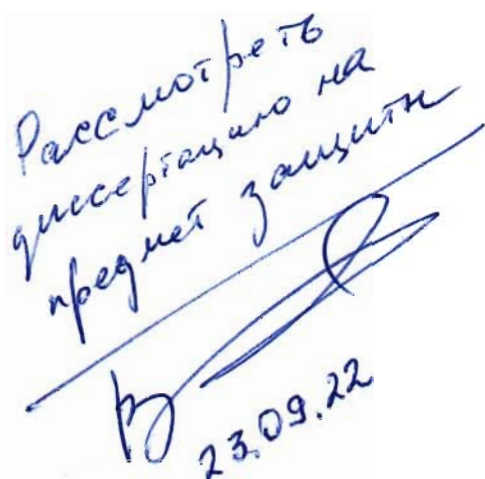 Рассмотреть
диссертацию на
предмет защиты
23.09.22